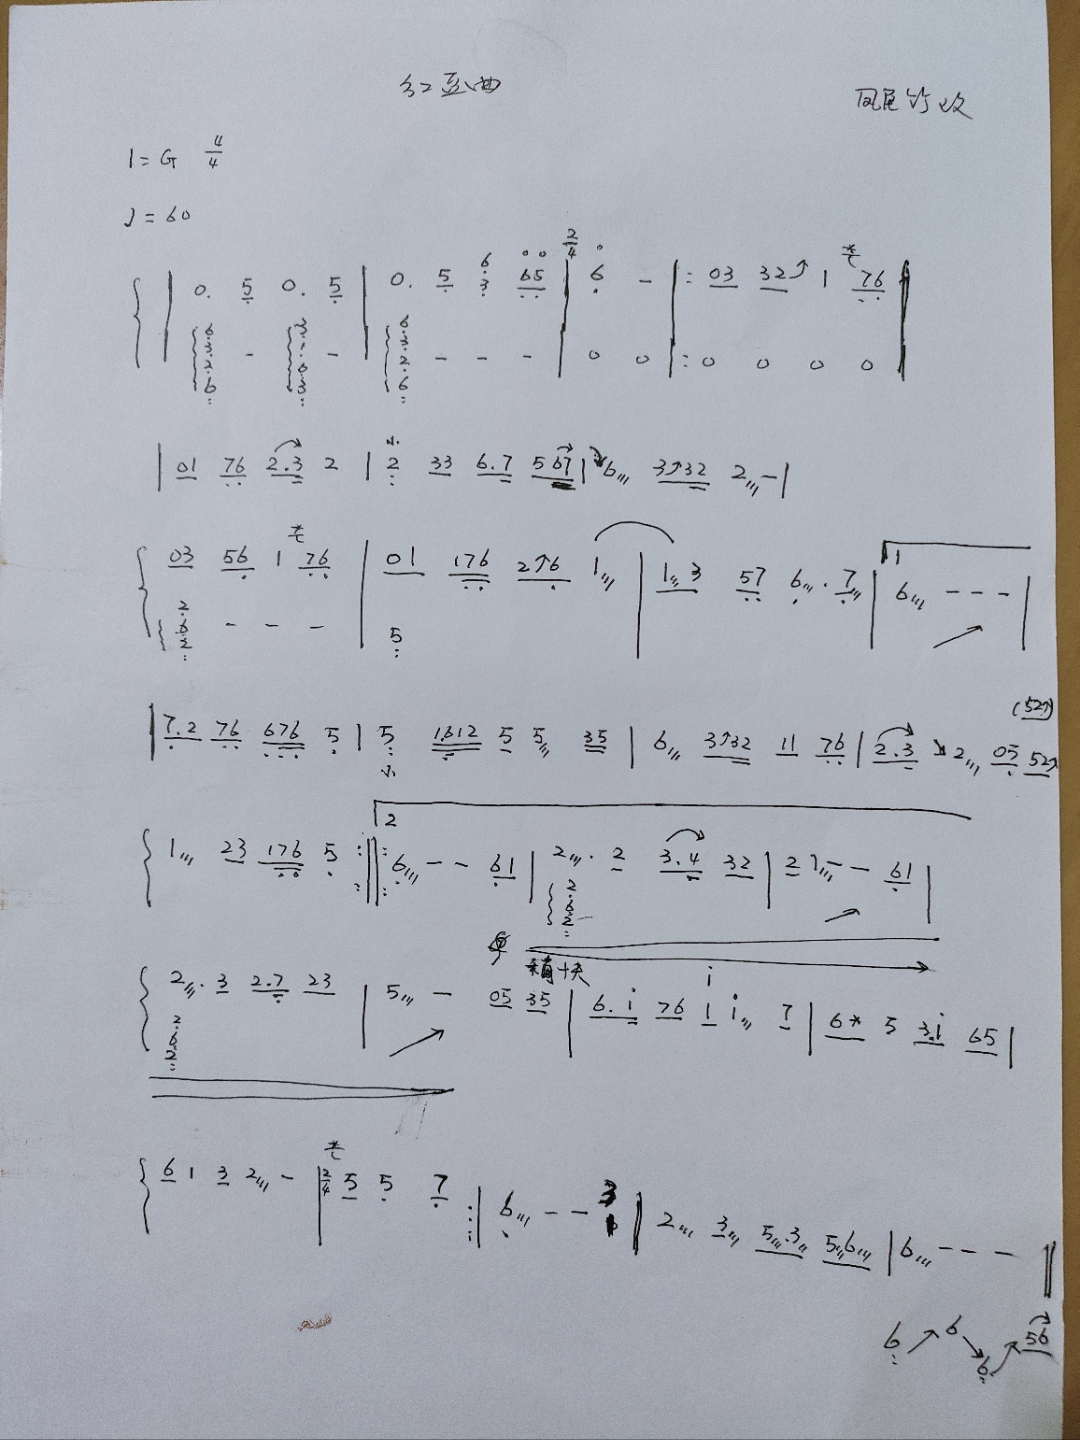 红豆曲
凤尾竹改
1=G 4/4
♩=60
| 0. 5 0. 5 | 0. 5 63 65 | 2/4 6 - |: 03 32↗ 1 76 |
6326 - 3 - | 6326 - - - | 0 0 |: 0 0 0 0 |
| 01 76 2.3 2 | 2 33 6.7 567 | 6,,, 3↗32 2,,, - |
03 56 1 76 | 01 176 2↗6 1,,, | 1,,, 3 57 6,,,. 7,,, | 1 6,,, - - - |
262 - - - | 5
(52↗)
| 7.2 76 676 5 | 5 1612 5 5,,, 35 | 6,,, 3↗32 11 76 | 2.3 ↘ 2,,, 05 52↗
2
1,,, 23 176 5 :||: 6,,, - - 61 | 2,,,. 2 3.4 32 | 2 1,,, - - 61 |
262
稍快
i
2,,,. 3 2.7 23 | 5,,, - 05 35 | 6. i 76 1 i,,, 7 | 6* 5 3.i 65 |
262
6 1 3 2,,, - | 2/4 5 5 7 :| 6,,, - - 3 || 2,,, 3,,, 5,,,.3,,, 5,,,6,,, | 6,,, - - - ||
6 ↗ 6 ↘ 6 ↗ 56